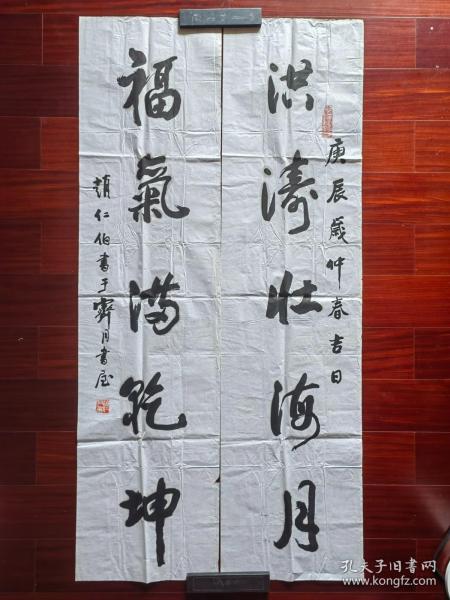 庚辰歲仲春吉日
洪濤壯海月
福氣滿乾坤
趙仁伯書于霽月書屋
孔夫子旧书网
www.kongfz.com